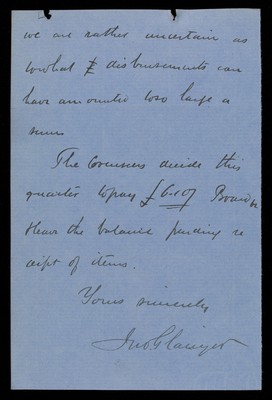 we are rather uncertain as
to what £ disbursements can
have amounted to so large a
sum
The Governors decide this
quarter to pay £6.10/ Board &
leave the balance pending re
ceipt of items.
Yours sincerely
Jno